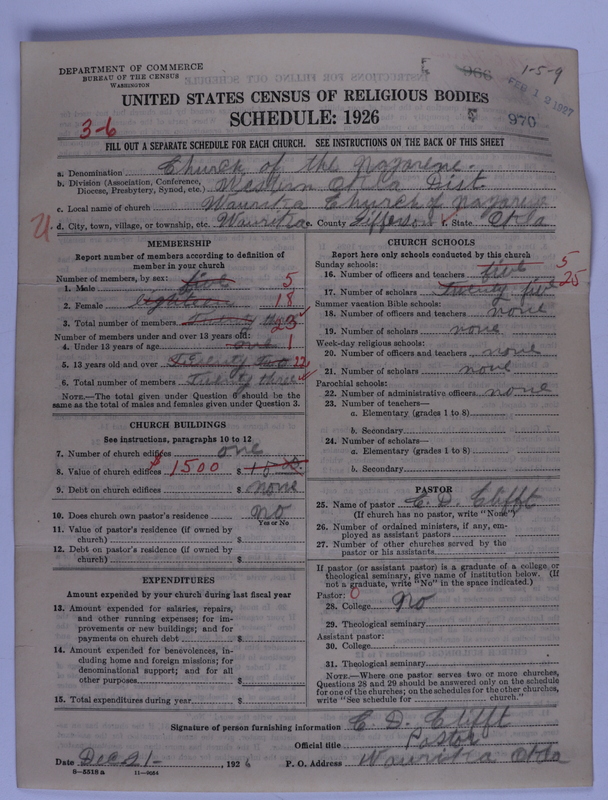 DEPARTMENT OF COMMERCE
BUREAU OF THE CENSUS
WASHINGTON
966
1-5-9
FEB 12 1927
970
UNITED STATES CENSUS OF RELIGIOUS BODIES
SCHEDULE: 1926
3-6
FILL OUT A SEPARATE SCHEDULE FOR EACH CHURCH. SEE INSTRUCTIONS ON THE BACK OF THIS SHEET
a. Denomination Church of the Nazarene.
b. Division (Association, Conference, Diocese, Presbytery, Synod, etc.) Western Okla Dist.
c. Local name of church Waurika Church of Nazarene
U d. City, town, village, or township, etc. Waurika e. County Jefferson f. State Okla
MEMBERSHIP
Report number of members according to definition of
member in your church
Number of members, by sex:
1. Male five 5
2. Female eighteen 18
3. Total number of members Twenty three 23
Number of members under and over 13 years old:
4. Under 13 years of age one 1
5. 13 years old and over Twenty two 22
6. Total number of members Twenty three
NOTE.—The total given under Question 6 should be the
same as the total of males and females given under Question 3.
CHURCH BUILDINGS
See instructions, paragraphs 10 to 12
7. Number of church edifices one
8. Value of church edifices $1500 $
9. Debt on church edifices $ none
10. Does church own pastor's residence no
Yes or No
11. Value of pastor's residence (if owned by
church) $
12. Debt on pastor's residence (if owned by
church) $
EXPENDITURES
Amount expended by your church during last fiscal year
13. Amount expended for salaries, repairs,
and other running expenses; for im-
provements or new buildings; and for
payments on church debt $
14. Amount expended for benevolences, in-
cluding home and foreign missions; for
denominational support; and for all
other purposes $
15. Total expenditures during year $
CHURCH SCHOOLS
Report here only schools conducted by this church
Sunday schools:
16. Number of officers and teachers five 5
17. Number of scholars Twenty five 25
Summer vacation Bible schools:
18. Number of officers and teachers none
19. Number of scholars none
Week-day religious schools:
20. Number of officers and teachers none
21. Number of scholars none
Parochial schools:
22. Number of administrative officers none
23. Number of teachers—
a. Elementary (grades 1 to 8)
b. Secondary
24. Number of scholars—
a. Elementary (grades 1 to 8)
b. Secondary
PASTOR
25. Name of pastor E. D. Clifft
(If church has no pastor, write "None")
26. Number of ordained ministers, if any, em-
ployed as assistant pastors
27. Number of other churches served by the
pastor or his assistants
If pastor (or assistant pastor) is a graduate of a college or
theological seminary, give name of institution below. (If
not a graduate, write "No" in the space indicated.)
Pastor: 0
28. College No
29. Theological seminary
Assistant pastor:
30. College
31. Theological seminary
NOTE.—Where one pastor serves two or more churches,
Questions 28 and 29 should be answered only on the schedule
for one of the churches; on the schedules for the other churches,
write "See schedule for church."
Signature of person furnishing information E. D. Clifft
Official title Pastor
Date Dec 21- 1926 P. O. Address Waurika Okla
8-5518 a 11-9064